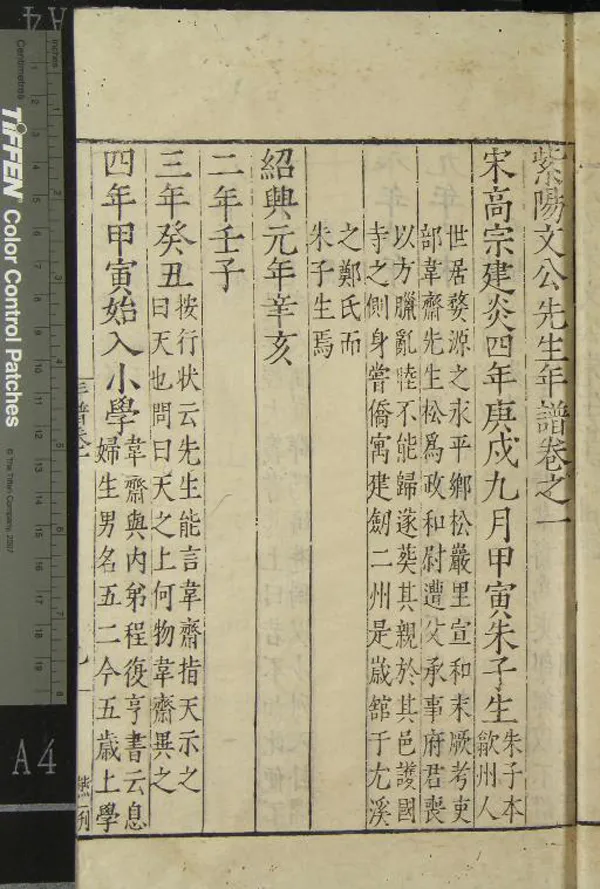 紫陽文公先生年譜卷之一
宋高宗建炎四年庚戌九月甲寅朱子生
朱子本
歙州人
世居婺源之永平鄉松巖里宣和末厥考吏
部韋齋先生松爲政和尉遭父承事府君喪
以方臘亂陸不能歸遂葬其親於其邑護國
寺之側身嘗僑寓建劒二州是歲舘于尤溪
之鄭氏而
朱子生焉
紹興元年辛亥
二年壬子
三年癸丑
按行狀云先生能言韋齋指天示之
曰天也問曰天之上何物韋齋異之
四年甲寅始入小學
韋齋與內弟程復亨書云息
婦生男名五二今五歲上學
年譜卷一
A4
A4
Inches
Centimetres
TIFFEN Color Control Patches
© The Tiffen Company, 2007
1
2
3
4
5
6
7
8
9
10
11
12
13
14
15
16
17
18
19
1
2
3
4
5
6
7
8